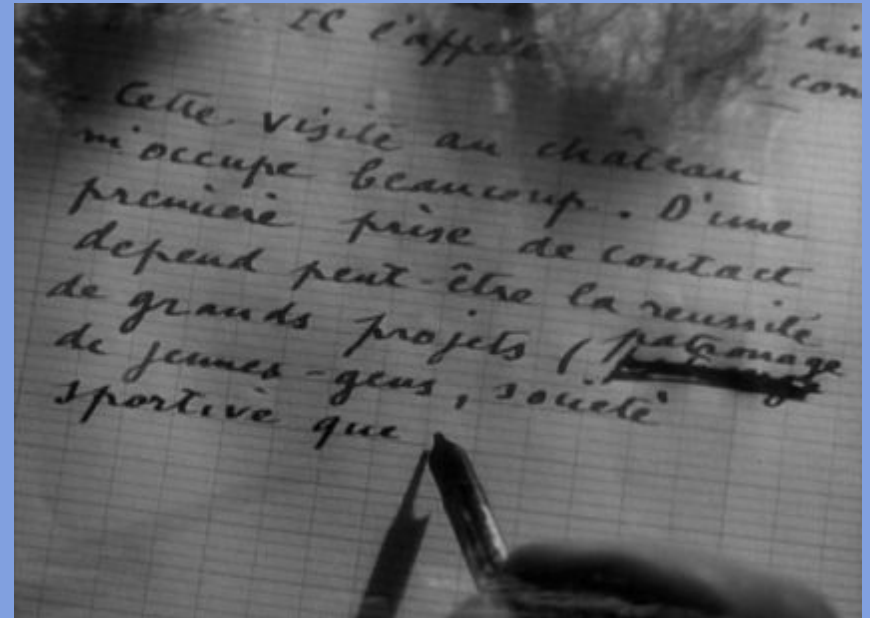 Il l'appelle
con
- Cette visite au château
m'occupe beaucoup. D'une
première prise de contact
depend peut-être la reussite
de grands projets ( patronage
de jeunes-gens, société
sportive que